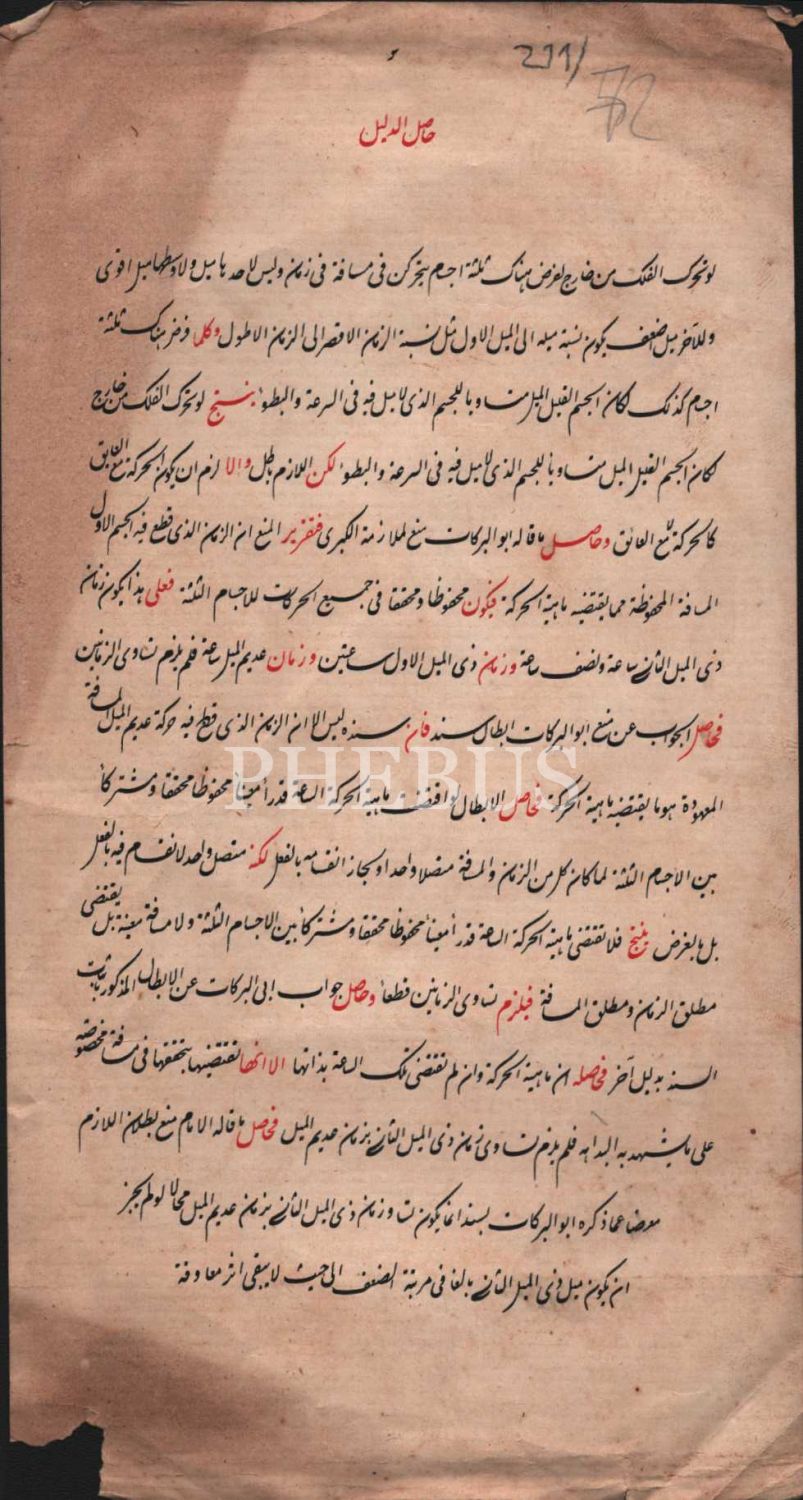 211/
52
حاصل الدليل
لو تحرك الفلك من خارج لفرض هناك ثلثة اجرام يتحركن فى مسافة فى زمان وليس لاحدها ميل ولاوسطها ميل اقوى
وللآخر ميل اضعف يكون نسبة ميله الى الميل الاول مثل نسبة الزمان الاقصر الى الزمان الاطول وكلما فرض هناك ثلثة
اجرام كذلك لكان الجسم القليل الميل مساويا للجسم الذى لا ميل فيه فى السرعة والبطوء ينتج لو تحرك الفلك من خارج
لكان الجسم القليل الميل مساويا للجسم الذى لا ميل فيه فى السرعة والبطوء لكن اللازم باطل والا لزم ان يكون الحركة مع العايق
كالحركة لا مع العائق وحاصل ما قاله ابو البركات منع لملازمة الكبرى فتقرير المنع ان الزمان الذى قطع فيه الجسم الاول
المسافة المحفوظة مما يقتضيه ماهية الحركة فيكون محفوظا ومحققا فى جميع الحركات للاجسام الثلثة فعلى هذا يكون زمان
ذى الميل الثانى ساعة ونصف ساعة وزمان ذى الميل الاول ساعتين وزمان عديم الميل ساعة فلم يلزم تساوى الزمانين
فحاصل الجواب عن منع ابو البركات ابطال سنده فان سنده ليس الا ان الزمان الذى قطع فيه حركة عديم الميل المسافة
المعهودة هو ما يقتضيه ماهية الحركة فحاصل الابطال لو اقتضت ماهية الحركة الساعة قدرا معينا محفوظا محققا ومشتركا
بين الاجسام الثلثة لما كان كل من الزمان والمسافة متصلا واحدا وبجاز انقسامه بالفعل لكنه متصل واحد لا انقسام فيه بالفعل
بل بالفرض ينتج فلا تقتضى ماهية الحركة الساعة قدرا معينا محفوظا محققا ومشتركا بين الاجسام الثلثة ولا مسافة معينة بل يقتضى
مطلق الزمان ومطلق المسافة فيلزم تساوى الزمانين قطعا وحاصل جواب ابى البركات عن الابطال المذكور باثبات
السند بدليل آخر فحاصله ان ماهية الحركة وان لم تقتضى تلك الساعة بذاتها الا انها تقتضيها بتحققها فى مسافة مخصوصة
على ما يشهد به البداهه فلم يلزم تساوى زمان ذى الميل الثانى بزمان عديم الميل فحاصل ما قاله الامام منع بطلان اللازم
معرضا عما ذكره ابو البركات بسند انما يكون تساو زمان ذى الميل الثانى بزمان عديم الميل محالا لو لم يجز
ان يكون ميل ذى الميل الثانى بالغا فى مرتبة الضعف الى حيث لا يبقى اثر معاوقة
PHEBUS